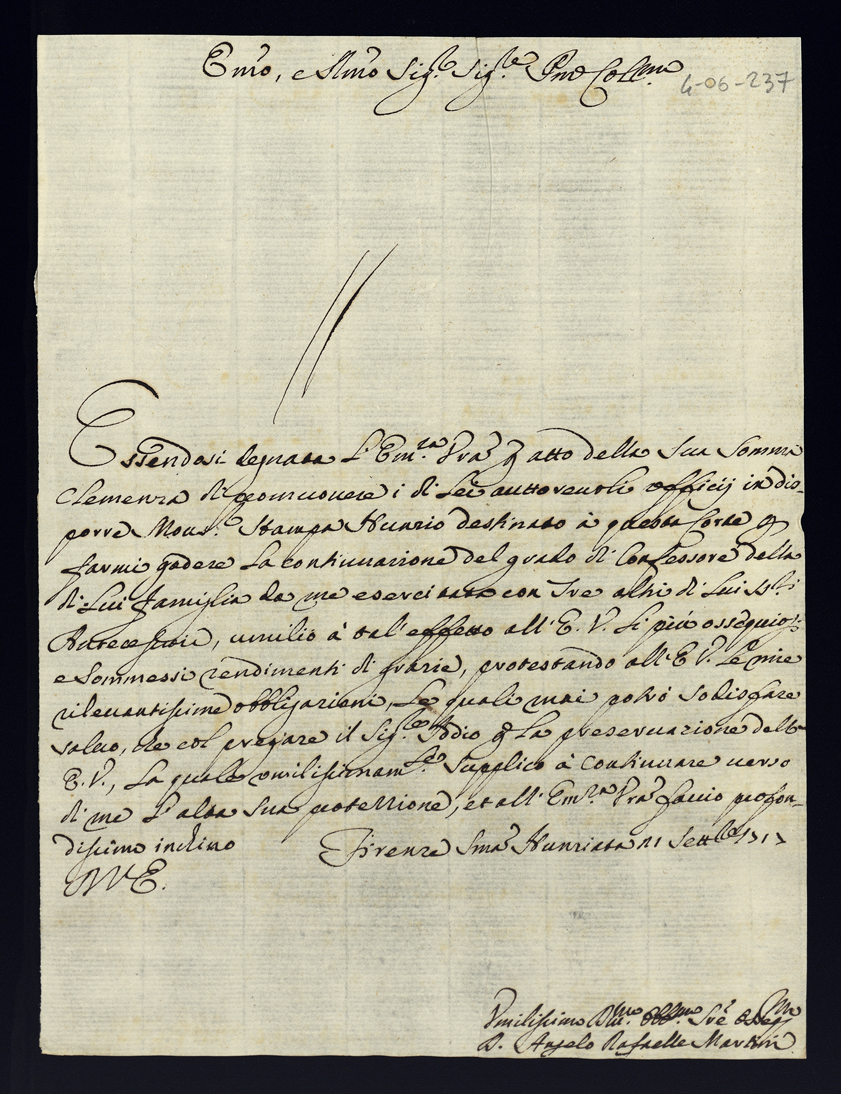 Emo, e Rmo Sig.re Sig.re Pne Col.mo
4-06-237
Essendosi degnata L'Em.za Vra p atto della Sua Somma
Clemenza di promuovere i di Lei auttorevoli officij in dis-
porre Mons.re Stampa Nunzio destinato à questa Corte p
farmi godere la continuazione del grado di Confessore della
di Lui famiglia da me esercitata con tre altri di Lui SS.ri
Antecessori, umilio à tal' effetto all' E. V. Li più ossequiosi
e Sommessi rendimenti di grazie, protestando all' E V. Le mie
rilevantissime obbligazioni, Le quali mai potrò sodisfare
salvo, che col pregare il Sig.re Iddio p La preservazione dell'
E. V., La quale umilissimam.te Supplico à continuare verso
di me L'alta Sua protettione, et all' Em.za Vra faccio profon-
dissimo inchino
Firenze Sma Nunziata 21 Settbre 1717
DVE.
Vmilissimo Obb.mo Sre
D. Angelo Raffaelle Martini